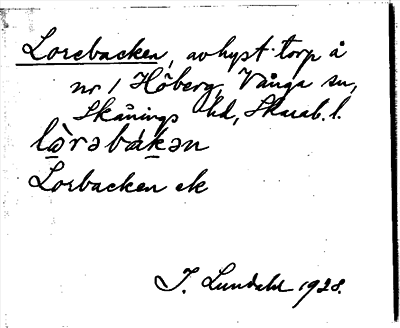 Lorebacken, avhyst torp å
nr 1 Höberg, Vånga sn,
Skånings hd, Skarab. l.
lò̠rəbàk̠ən
Lorbacken ek
I. Lundahl 1928.